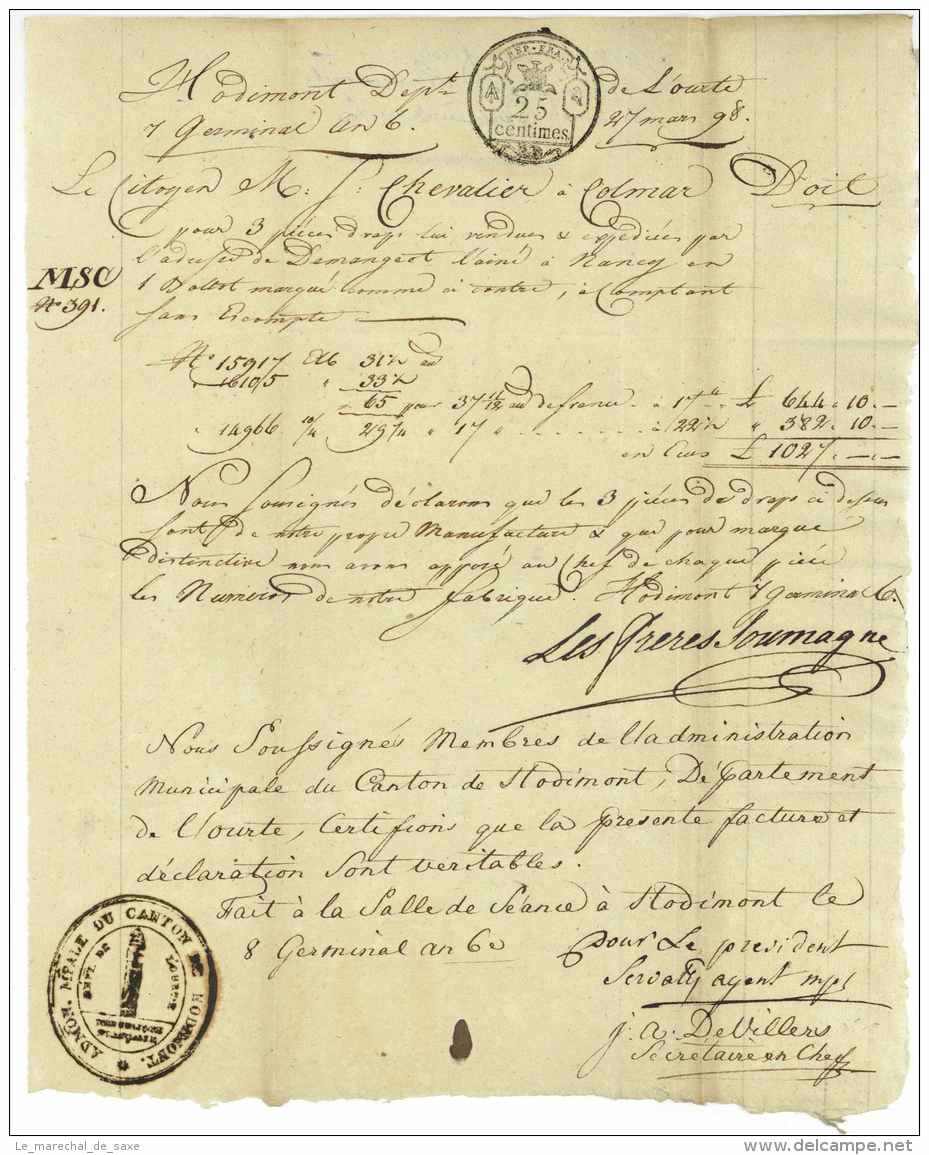 Hodimont Dept. de L'ourte
REP. FRA.
25
centimes
7 Germinal An 6. 27 mars 98.
Le Citoyen M. S. Chevalier à Colmar Doit
pour 3 pièces draps lui vendues & expediées par
l'adresse de Demangeot l'ainé à Nancy en
1 Ballot marqué comme ci contre, à Comptant
Sans Escompte
MSC
No 391.
No 15917 31½ au
16105 " 33½
65 pour 37 11/12 au de france à 17 £ 644 . 10 . –
14966 29¾ " 17 " à 22½ " 382 . 10 –
en Ecus £ 1027 . – . –
Nous Sousignés déclarons que les 3 pièces de draps ci dessus
sont de notre propre Manufacture & que pour marque
distinctive nous avons apposé au Chef de chaque pièce
les Numeros de notre fabrique. Hodimont 7 germinal 6.
Les Freres Soumagne
Nous Soussignés Membres de l'administration
Municipale du Canton de Hodimont, Département
de l'ourte, Certifions que la presente facture et
déclaration Sont veritables.
Fait à la Salle de Séance à Hodimont le
8 Germinal an 6e pour Le president
Servaty agent mpl
j. a. DeVillers
Secretaire en Chef
ADMON. MPALE DU CANTON DE HODIMONT.
DEPT. DE LOURTE
Le_marechal_de_saxe
delcampe.net